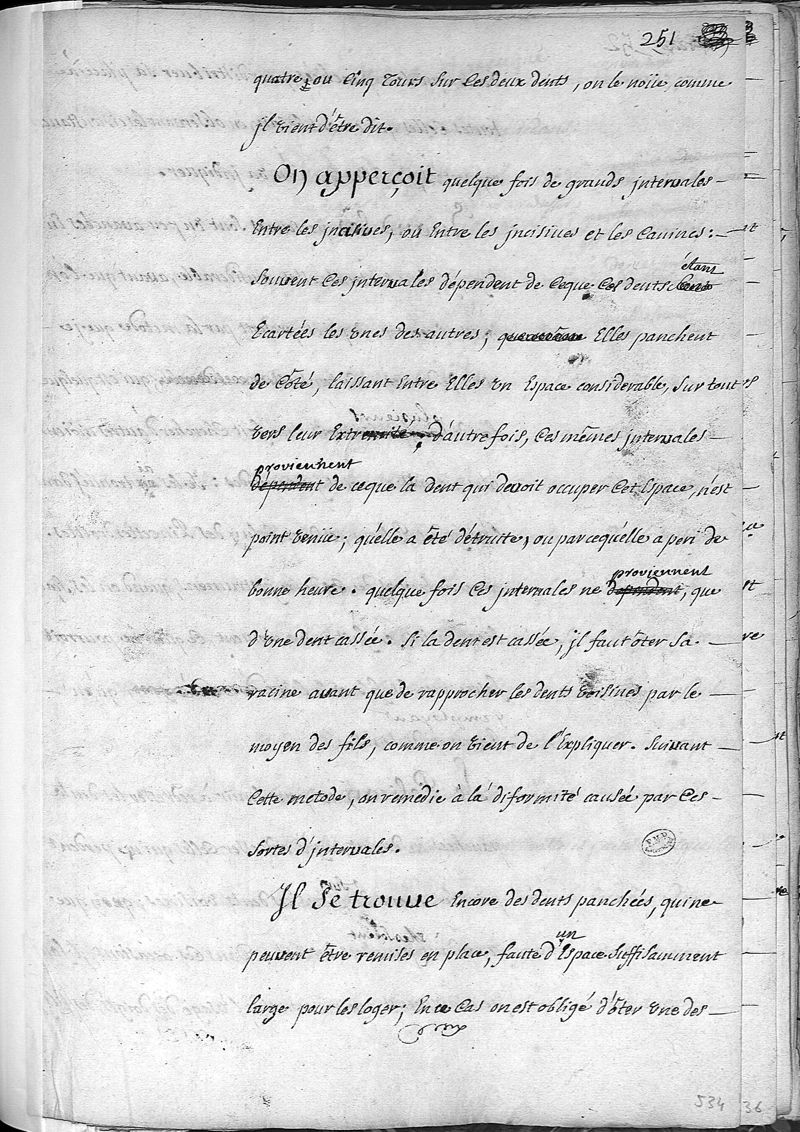 251
quatre ou Cinq Tours sur Ces deux dents, on le noüe comme
jl vient d'être dit.
On apperçoit quelque fois de grands intervales
Entre les jncisives, ou Entre les jncisives et les Canines:
souvent Ces jntervales dépendent de Ceque Ces dents étant
Ecartées les unes des autres, Elles panchent
de Côté, laissant Entre Elles un Espace considerable, sur tout
vers leur Extremité; plusieurs d'autre fois, Ces mêmes jntervales
proviennent
dependent de ceque la dent qui devoit occuper Cet Espace, n'est
point venüe; quélle a été détruite, ou parcequélle a peri de
proviennent
bonne heure. quelque fois Ces jntervales ne dependent, que
d'une dent cassée. Si la dent est cassée, jl faut ôter sa
racine avant que de rapprocher les dents voisines par le
moyen des fils, comme on vient de l'Expliquer. suivant
Cette metode, on remedie a la diformité causée par Ces
sortes d'jntervales.
Il se trouve Encore des dents panchées, qui ne
peuvent être remises en place, faute d'un Espace suffisamment
large pour les loger; En ce Cas on est obligé d'ôter une des
534
36